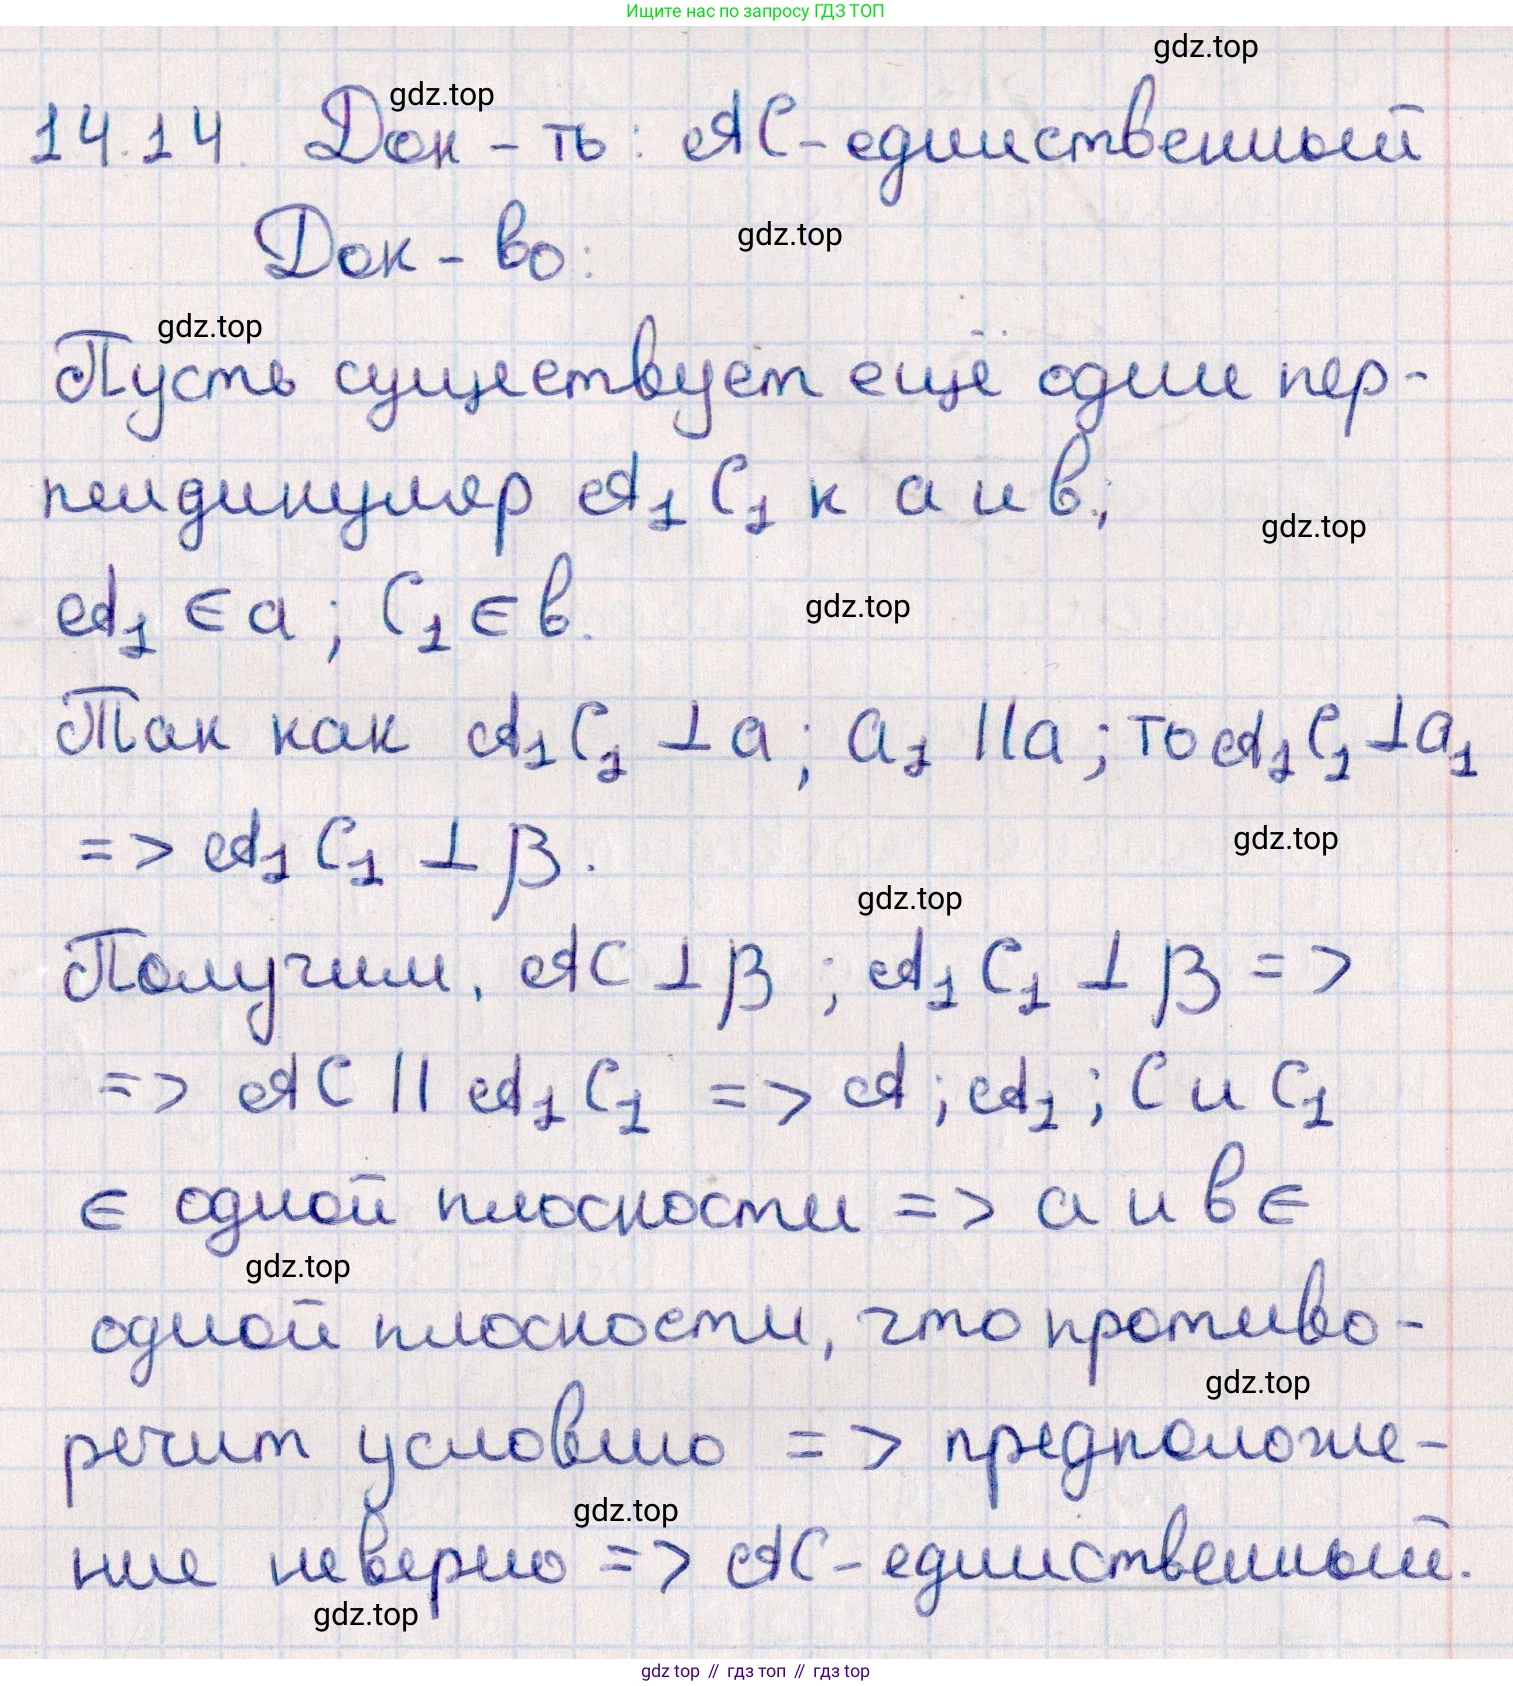 Ищите нас по запросу ГДЗ ТОП
gdz.top
14.14. Док-ть: AC-единственный
gdz.top
Док-во:
gdz.top
gdz.top
Пусть существует ещё один пер-
пендикуляр A₁C₁ к a и b;
gdz.top
A₁ ∈ a; C₁ ∈ b.
gdz.top
Так как A₁C₁ ⊥ a; a₁ || a; то A₁C₁ ⊥ a₁
=> A₁C₁ ⊥ β.
gdz.top
gdz.top
Получим, AC ⊥ β; A₁C₁ ⊥ β =>
=> AC || A₁C₁ => A; A₁; C и C₁
∈ одной плоскости => a и b ∈
gdz.top
одной плоскости, что противо-
gdz.top
речит условию => предположе-
gdz.top
ние неверно => AC-единственный.
gdz.top
gdz top // гдз топ // гдз top